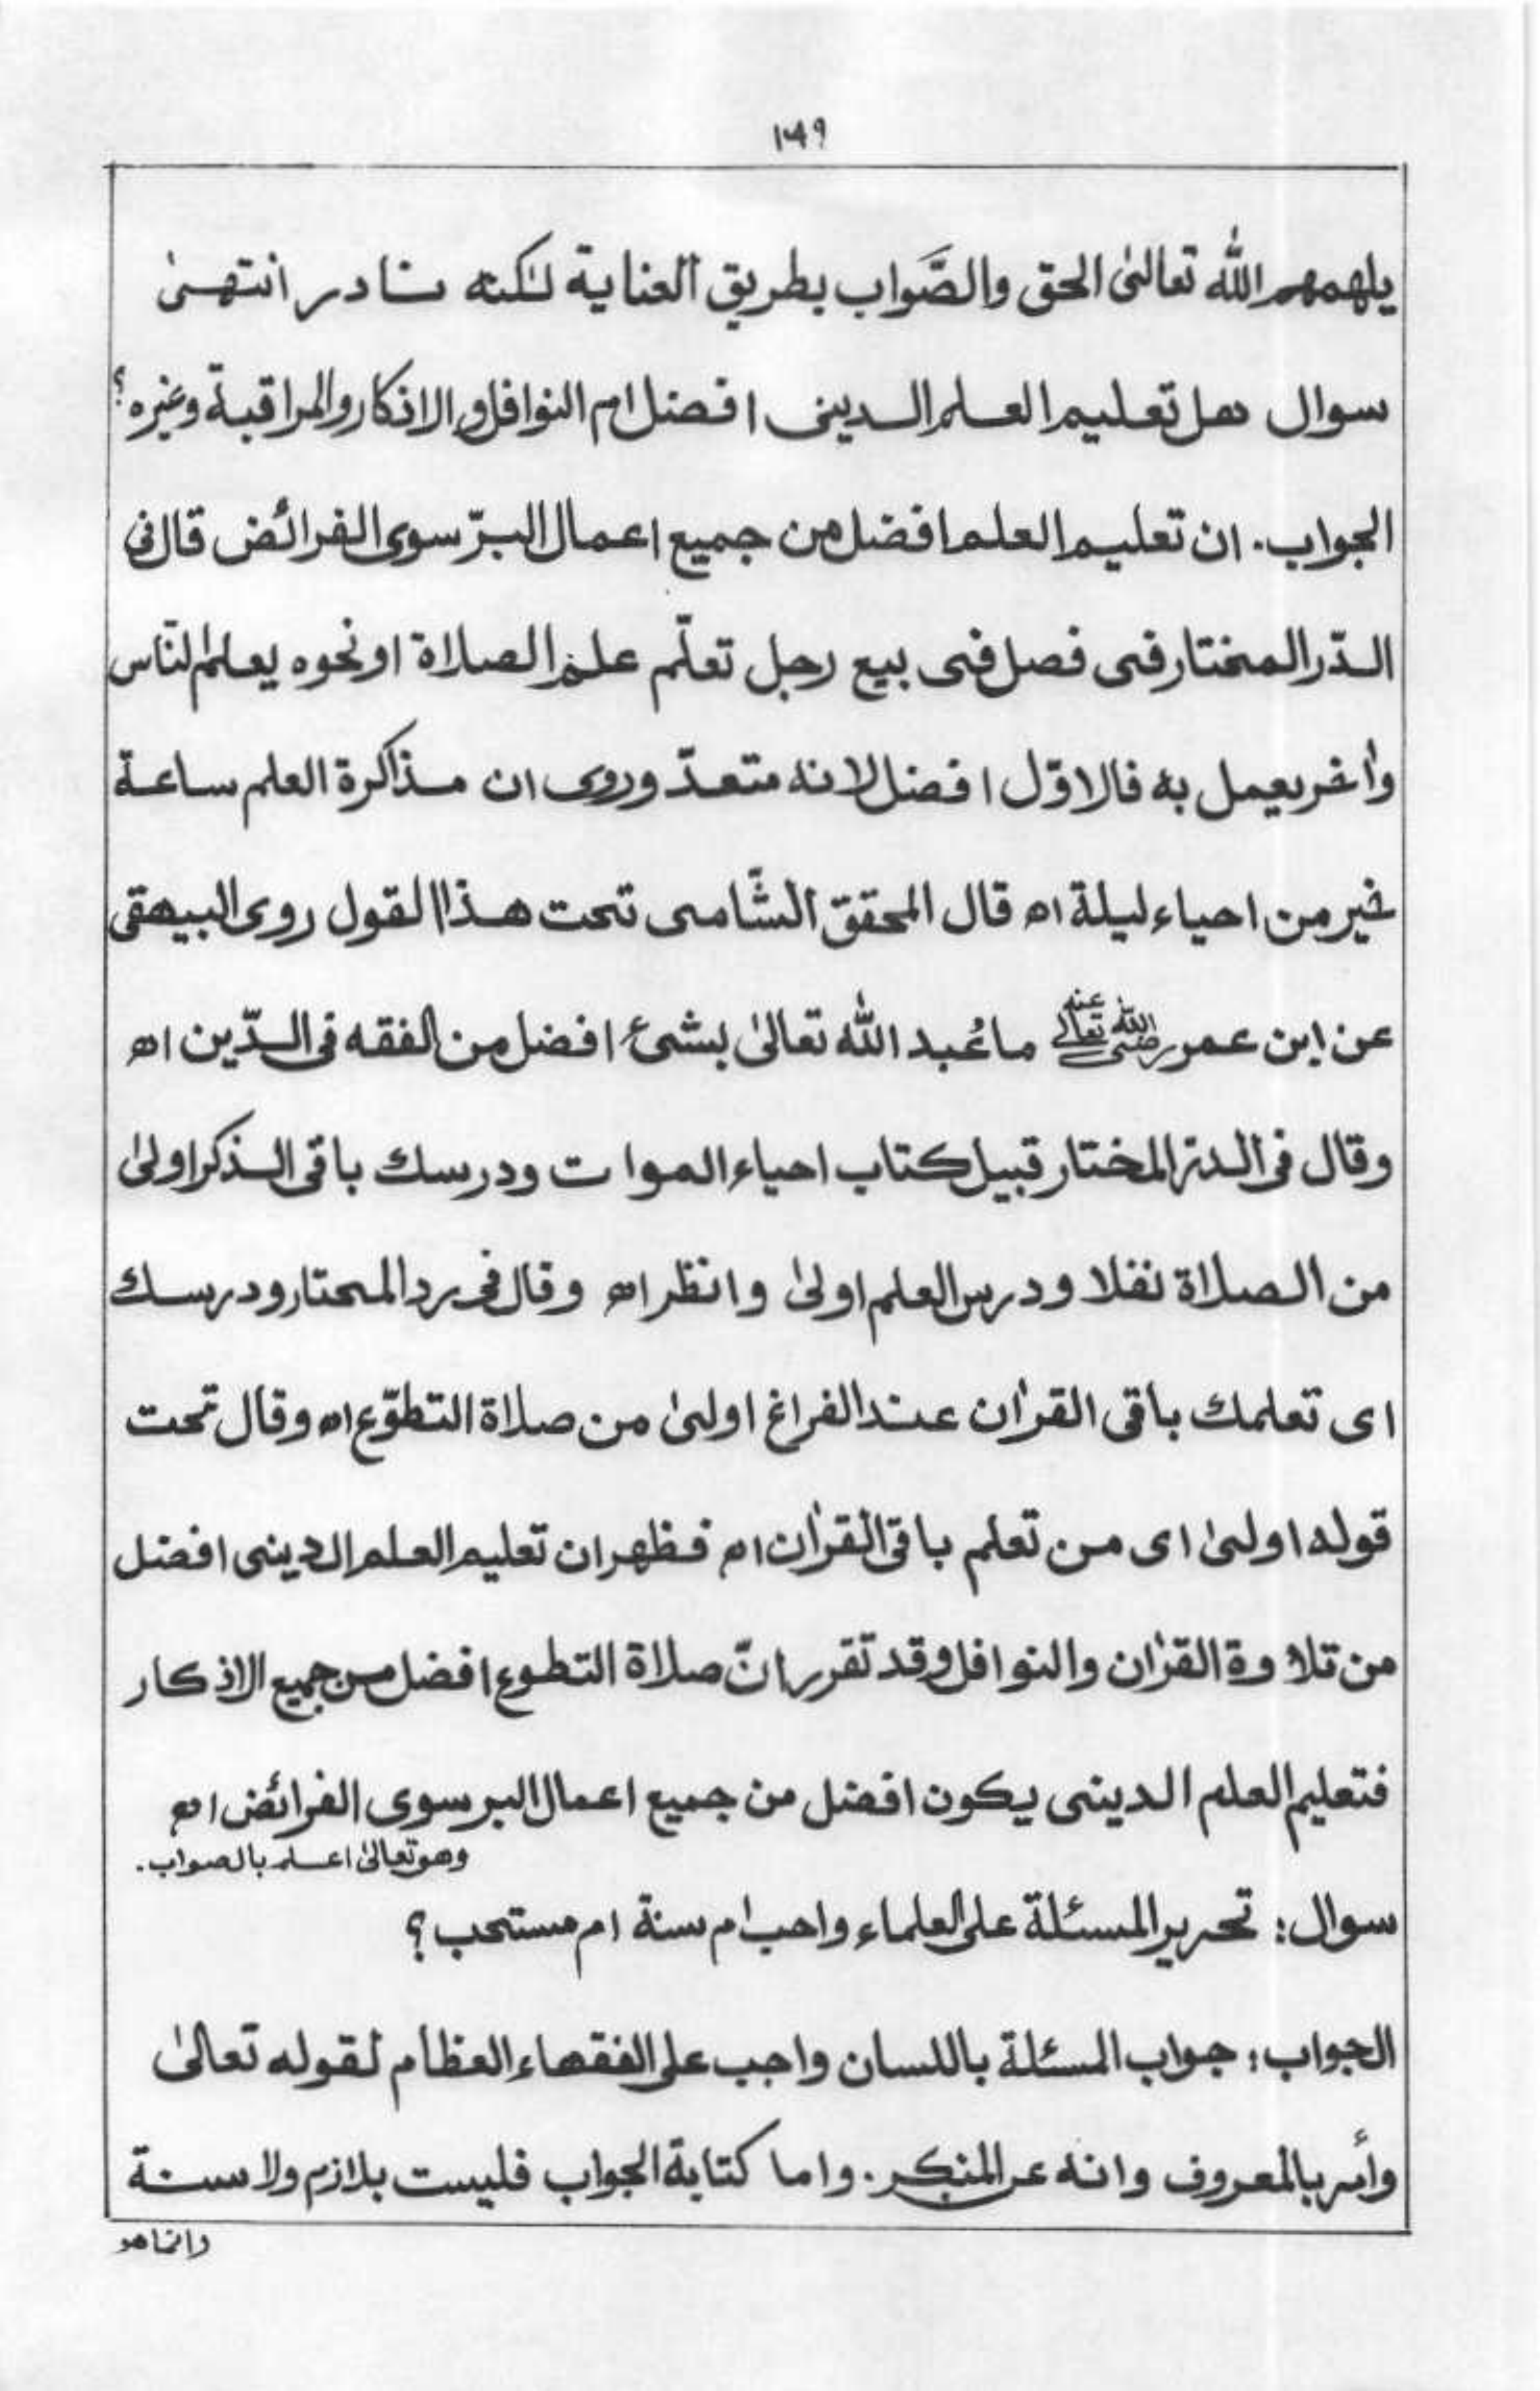 ۱۴۹
يلهمهم الله تعالىٰ الحق والصَّواب بطريق العناية لٰكنه نادر انتهىٰ
سوال هل تعليم العلم الدينى افضل ام النوافل والاذكار والمراقبة وغيره؟
الجواب. ان تعليم العلم افضل من جميع اعمال البرّ سوى الفرائض قال فى
الدّر المختار فى فصل فى بيع رجل تعلّم علم الصلاة او نحوه يعلم الناس
واٰخر يعمل به فالاوّل افضل لانه متعدّ وروى ان مذاكرة العلم ساعة
خير من احياء ليلة اھ قال المحقق الشّامى تحت هذا القول روى البيهقى
عن ابن عمر رضى الله تعالىٰ عنه ما عُبد الله تعالىٰ بشئ افضل من الفقه فى الدّين اھ
وقال فى الدر المختار قبيل كتاب احياء الموات ودرسك باقى الذكر اولىٰ
من الصلاة نفلا ودرس العلم اولىٰ وانظر اھ وقال فى رد المحتار ودرسك
اى تعلمك باقى القراٰن عند الفراغ اولىٰ من صلاة التطوّع اھ وقال تحت
قوله اولىٰ اى من تعلم باقى القراٰن اھ فظهر ان تعليم العلم الدينى افضل
من تلاوة القراٰن والنوافل وقد تقرر انّ صلاة التطوع افضل من جميع الاذكار
فتعليم العلم الدينى يكون افضل من جميع اعمال البر سوى الفرائض اھ
وهو تعالىٰ اعلم بالصواب.
سوال: تحرير المسئلة على العلماء واجب ام سنة ام مستحب؟
الجواب: جواب المسئلة باللسان واجب على الفقهاء العظام لقوله تعالىٰ
وأمر بالمعروف وانه عن المنكر. واما كتابة الجواب فليست بلازم ولا سنة
وانما هو